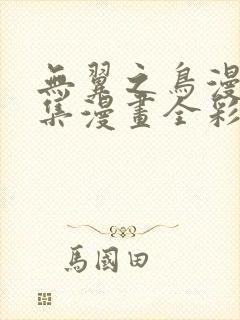 無翼之鳥漫
集漫畫全彩
馬國田